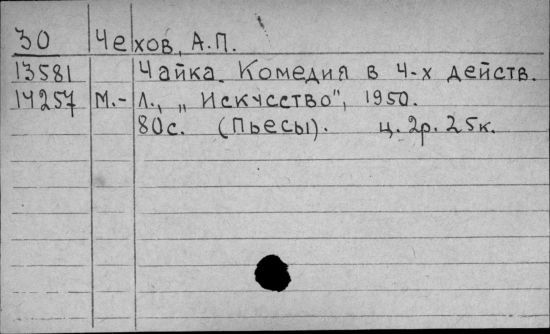 30 Чехов, А.П.
13581 Чайка. Комедия в 4-х действ.
14257 М.-Л., „Искусство", 1950.
80с. (Пьесы). ц. 2р. 25к.